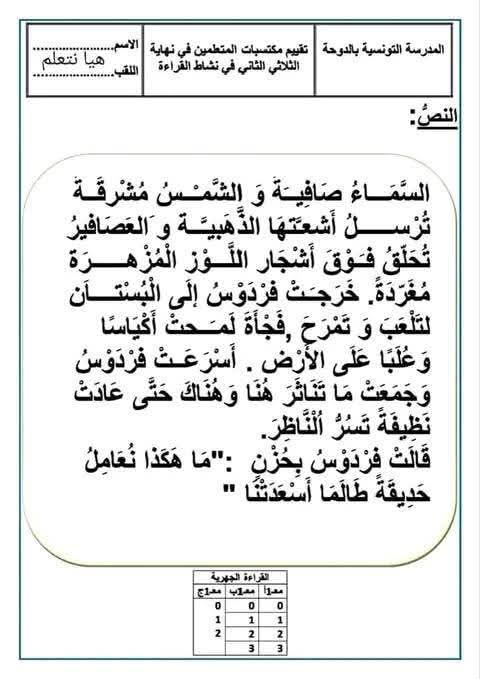 المدرسة التونسية بالدوحة
تقييم مكتسبات المتعلمين في نهاية
الثلاثي الثاني في نشاط القراءة
الاسم......................
هيا نتعلم
اللقب......................
النصُّ:
السَّمَـــاءُ صَافِيَـةَ وَ الشَّمْـسُ مُشْرِقَـةَ
تُرْسِــــلُ أَشعَتهَا الذَّهَبيـَّـة وَ العَصَافيرُ
تُحَلّقُ فَـوْقَ أَشْجَارِ اللَّـوْزِ الْمُزْهِــرَة
مُغَرّدَةً. خَرَجَـتْ فرْدَوْسُ إلَى الْبُسْتـَـان
لتَلْعَبَ وَ تَمْرَحَ ,فَجْأَةَ لَمَـحـتْ أَكْيَاسًا
وَ عُلَبًا عَلَى الأَرْض . أَسْرَعَـتْ فرْدَوْسُ
وَجَمَعَتْ مَا تَنَاثَرَ هُنَا وَهُنَاكَ حَتَّى عَادَتْ
نَظِيفَةً تَسُرُّ اُلْنَّاظِرَ.
قَالَتْ فرْدَوْسُ بِحُزْنٍ :"مَا هَكَذا نُعَامِلُ
حَدِيقَةً طَالَمَا أَسْعَدَتْنَا "
القراءة الجهرية
معـ1أ معـ1ب معـ1ج
0 0 0
1 1 1
2 2 2
3 3